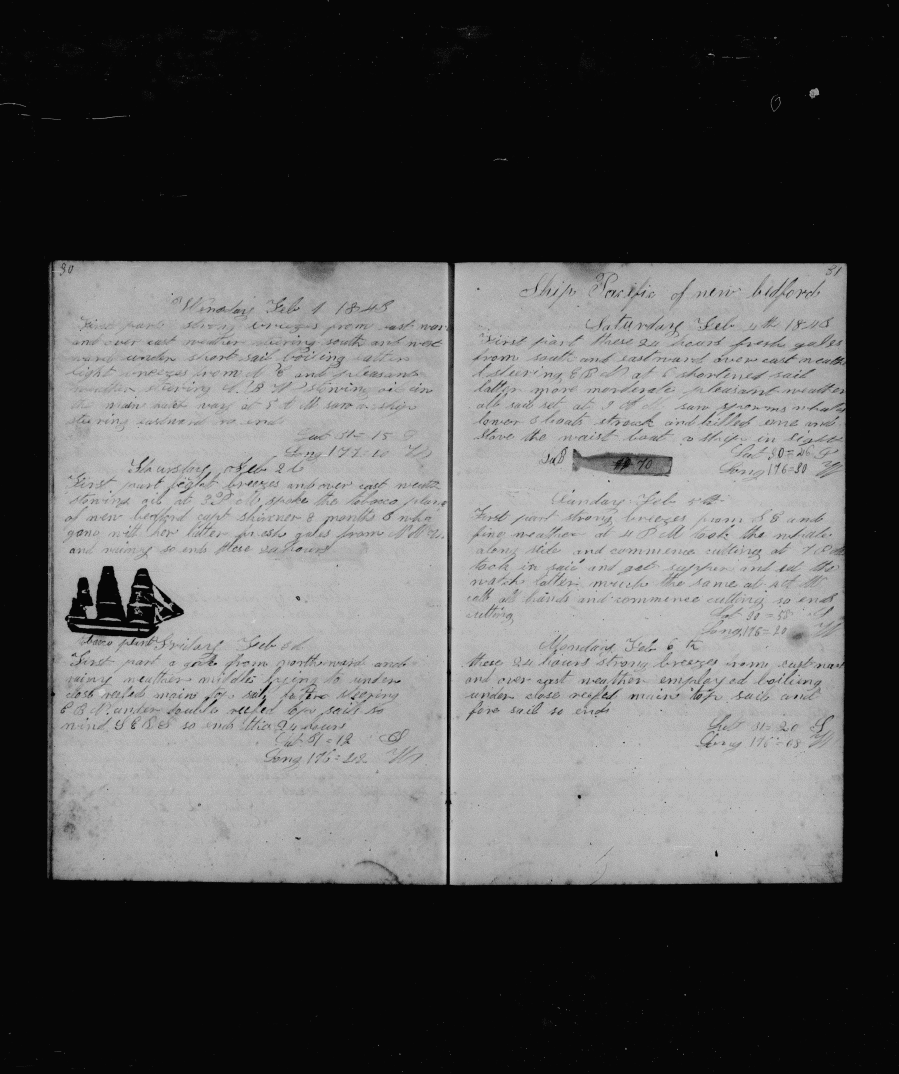 30
Winsday Feb 1 1843
First part strong breezes from east nor
and over east weather stering south and west
ward under short sail boiling latter
light breezes from N E and pleasant
weather stering stowing oil in
the main hatch way at 5 A M saw a ship
stering eastward so ends
Lat 31=15 S
Long 177=10 W
Thursday Feb 2d
First part light breezes and over east weather
stowing oil at 2 P M spoke the tobacco plant
of new bedford capt skinner 8 months 8 whls
gone with her latter fresh gales from N N W
and rainy so ends these 24 hours
tobacco plant Friday Feb 3d
First part a gale from northward and
rainy weather middle lying to under
close reefed main top sail latter steering
E B N under double reefed top sails so
wind S E B S so ends this 24 hours
Lat 31=12 S
Long 176=42 W
31
Ship Pacific of new bedford
Saturday Feb 4th 1843
First part these 24 hours fresh gales
from south and eastward over east weathe
steering E B N at 6 shortened sail
latter more moderate pleasant weather
all sail set at 9 A M saw sperm whales
lower 3 boats struck and killed one and
stove the waist boat a ship in sight
Lat 30=46 S
Long 176=30 W
70
Sunday Feb 5th
First part strong breezes from S E and
fine weather at 4 P M took the whale
along side and commence cutting at 7 P M
took in sail and got supper and set the
watch latter much the same at 4 A M
call all hands and commence cutting so ends
cutting
Lat 30=58 S
Long 176=20 W
Monday Feb 6th
these 24 hours strong breezes from east nor
and over east weather employed boiling
under close reefed main top sail and
fore sail so ends
Lat 31=20 S
Long 176=08 W